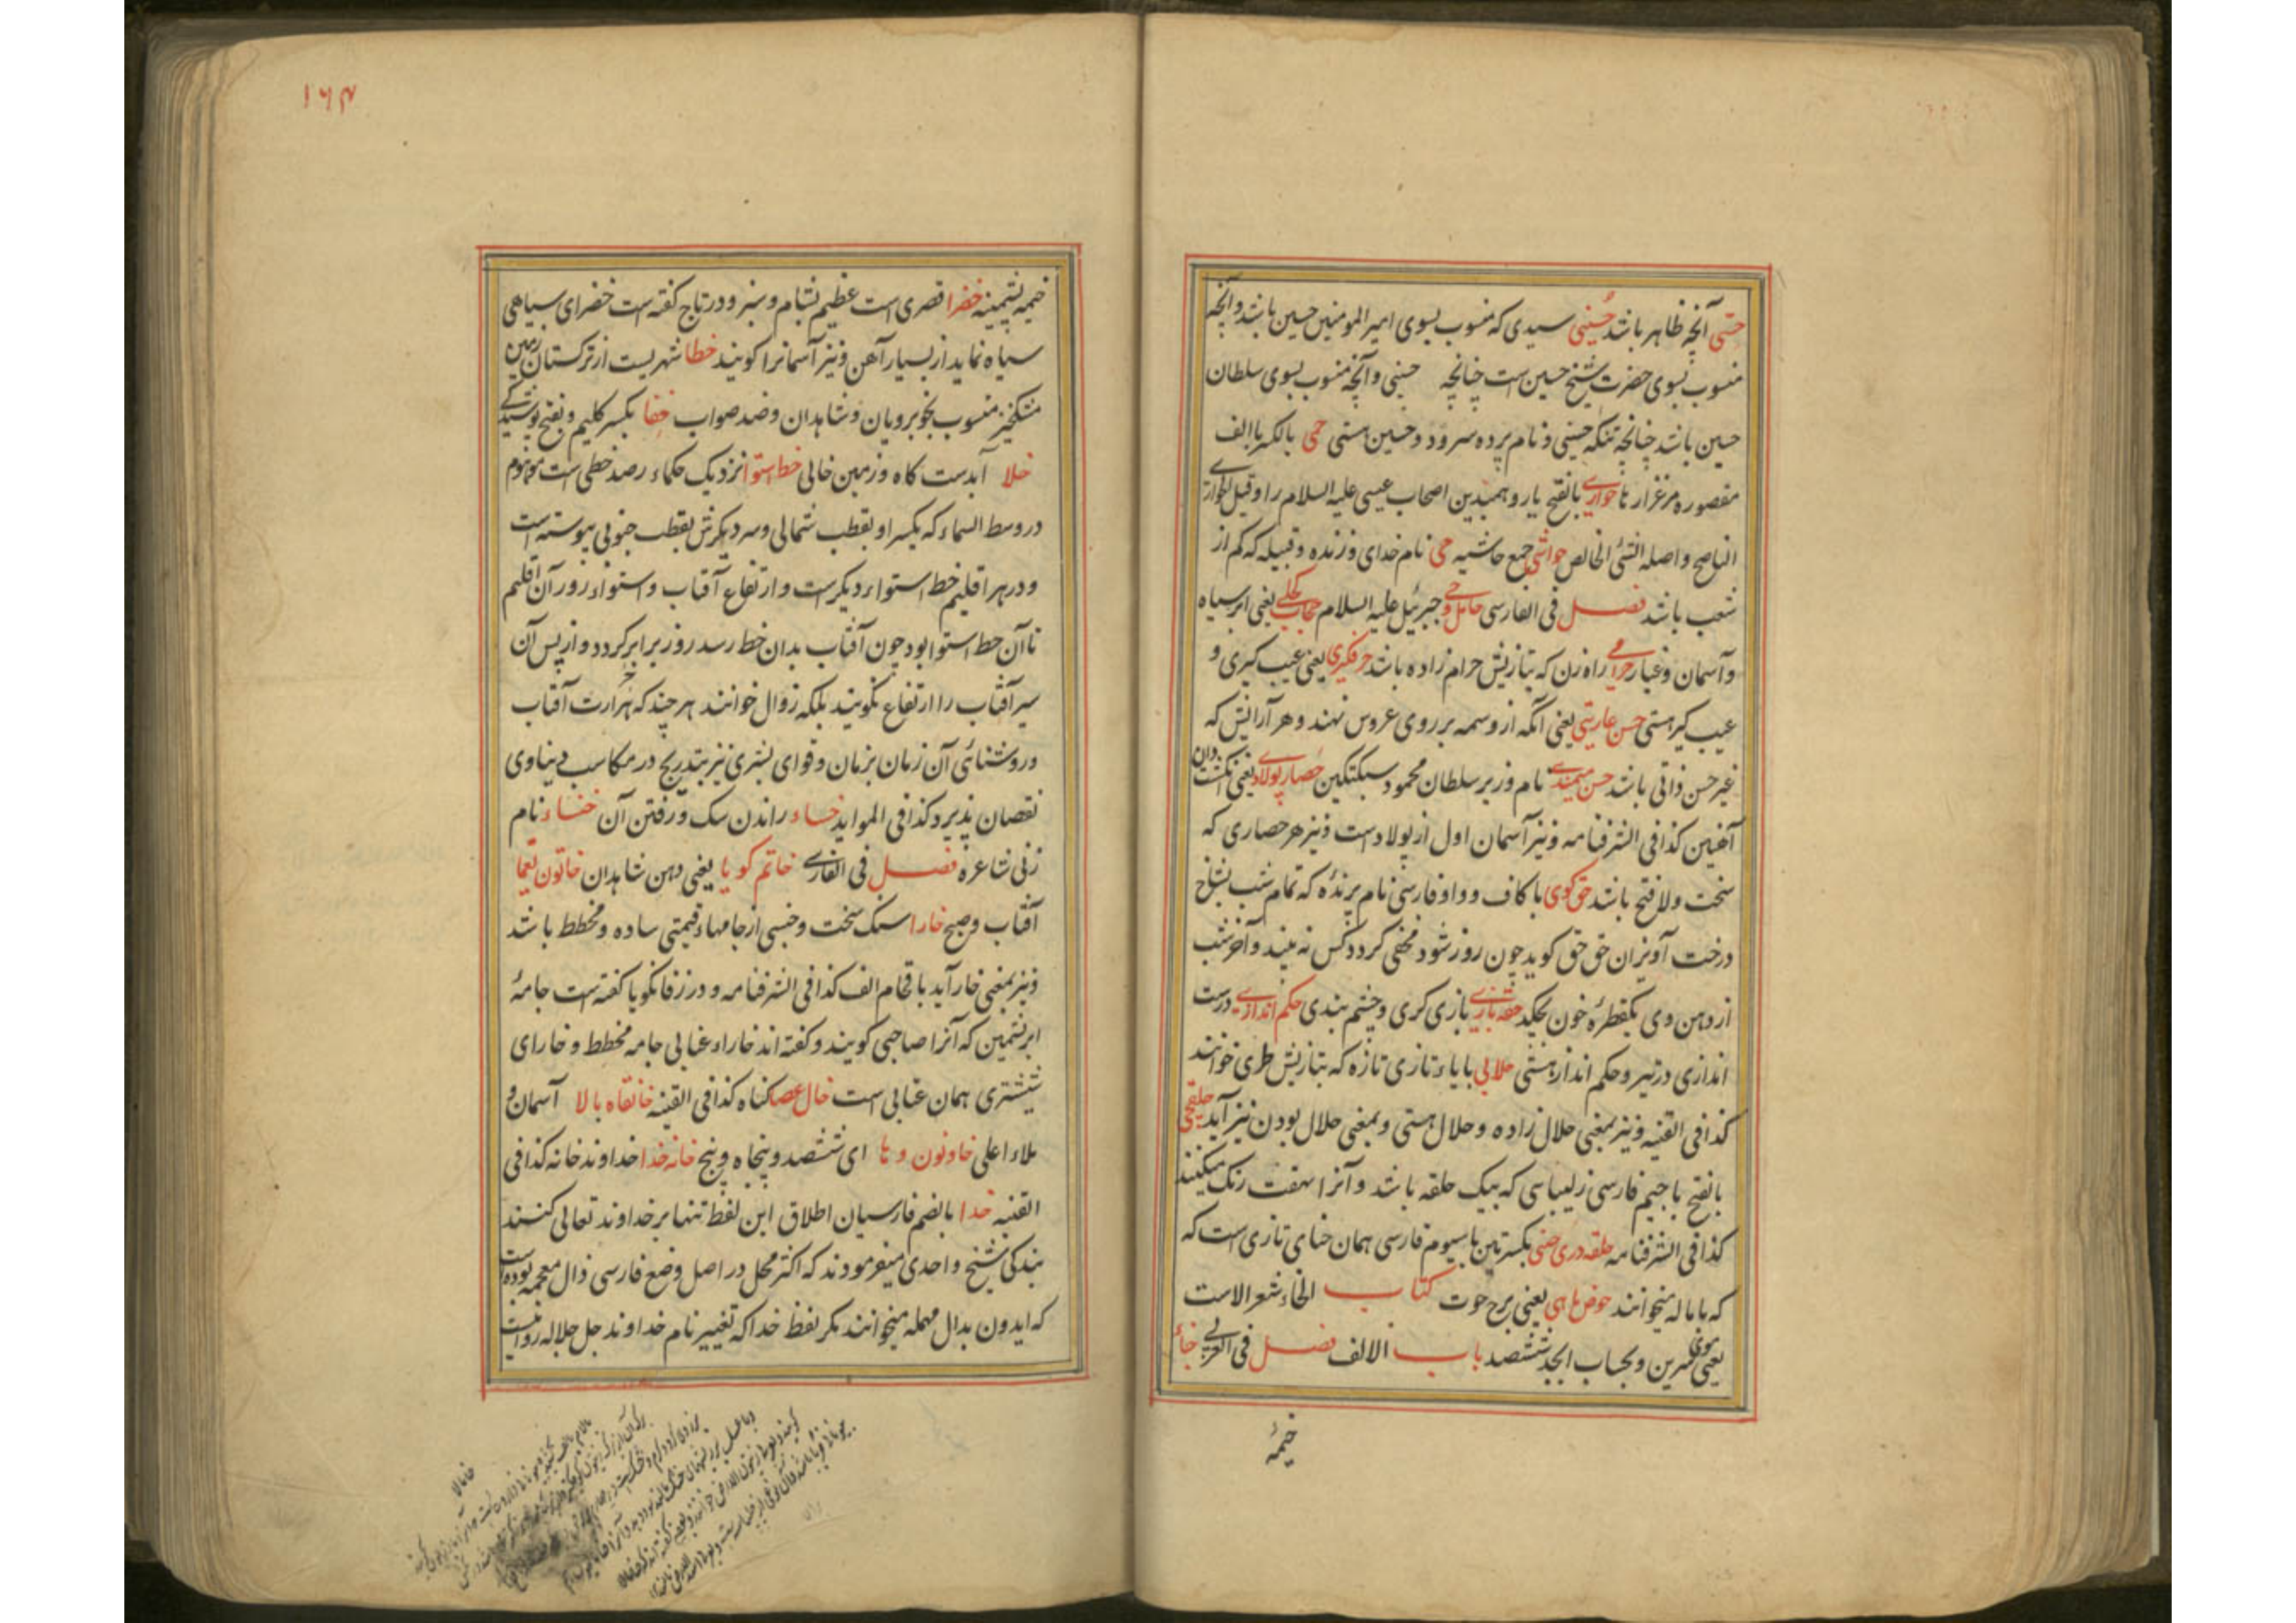 حسّی آنچه ظاهر باشد حُسینی سیدی که منسوب بسوی امیر المومنین حسین باشد و آنچه
منسوب بسوی حضرت شیخ حسین است چنانچه حسینی و آنچه منسوب بسوی سلطان
حسین باشد چنانچه تنکه حسینی و نام پرده سرود و حسین هستی حمی بالکسر با الف
مقصوره مرغزارها حواری بالفتح یار و همیدین اصحاب عیسی علیه السلام را و قیل
الناصح و اصله الشئ الخالص حواشی جمع حاشیه حی نام خدای و زنده و قبیله که کم از
شعب باشد فصل فی الفارسی حامل وحی جبرئیل علیه السلام حجاب کحلی یعنی ابر سیاه
و آسمان و غبار حرامی راه زن که بتازیش حرام زاده باشد حرفگیری یعنی عیب کیری و
عیب کیر هستی حسن عاریتی یعنی آنکه از وسمه بر روی عروس نهند و هر آرایش که
غیر حسن ذاتی باشد حسن میمندی نام وزیر سلطان محمود سبکتکین حصار پولاد یعنی انگشت دان
آهنین کذا فی الشرفنامه و نیز آسمان اول از پولادست و نیز هر حصاری که
سخت و لا فتح باشد حق کوی با کاف و واو فارسی نام پرنده که تمام شب بشاخ
درخت آویزان حق حق کوید چون روز شود مخفی کردد کس نه بیند و آخر شب
از دهن وی یکقطره خون بچکد حقه بازی بازی کری و چشم بندی حکم اندازی درست
اندازی در تیر و حکم انداز هستی حلالی بایاء تازی تازه که بتازیش طری خوانند
کذا فی القنیه و نیز بمعنی حلال زاده و حلال هستی و بمعنی حلال بودن نیز آید حلقچی
بالفتح با جیم فارسی زلیبا سی که بیک حلقه باشد و آنرا بهفت رنک میکنند
کذا فی الشرفنامه حلقه دری حنی بکسرتین با سیوم فارسی همان حنای تازی است که
که با ماله میخوانند حوض ماهی یعنی برج حوت کتاب الخاء شعر الاست
یعنی موی سرین و بحساب ابجد ششصد باب الالف فصل فی العربی خباء
خیمهٔ
۱۶۴
خیمه پشمینه خضرا قصری است عظیم بشام و سبز و در تاج کفته است خضرای سیاهی
سیاه نماید از بسیار آهن و نیز آسمانرا کویند خطا شهریست از ترکستان زمین
مشکخیز منسوب بخوبرویان و شاهدان و ضد صواب خفا بکسر کلیم و بفتح پوشیدگی
خلا آبدست کاه و زمین خالی خط استوا نزدیک حکماء رصد خطی است موهوم
در وسط السماء که یکسر او بقطب شمالی و سر دیکرش بقطب جنوبی پیوسته است
و در هر اقلیم خط استواء دیکرست و ارتفاع آفتاب و استواء روز آن اقلیم
تا آن خط استوا بود چون آفتاب بدان خط رسد روز برابر کردد و از پس آن
سیر آفتاب را ارتفاع نکویند بلکه زوال خوانند هر چند که حرارت آفتاب
و روشنائی آن زمان بزمان و قوای بشری نیز بتدریج در مکاسب دنیاوی
نقصان پذیرد کذا فی الموائد خساء راندن سک و رفتن آن خنساء نام
زنی شاعره فصل فی الفارسی خاتم کویا یعنی دهن شاهدان خاتون یغما
آفتاب و صبح خارا سنک سخت و جنسی از جامهاء قیمتی ساده و مخطط باشد
و نیز بمعنی خار آید باقحام الف کذا فی الشرفنامه و در زفانکویا کفته است جامهٔ
ابریشمین که آنرا صاحبی کویند و کفته اند خاراء عتابی جامه مخطط و خارای
شیشتری همان عتابی است خال عصا کناه کذا فی القنیه خانقاه بالا آسمان و
ملاء اعلی خا و نون و ها ای ششصد و پنجاه و پنج خانه خدا خداوند خانه کذا فی
القنیه خدا بالضم فارسیان اطلاق این لفظ تنها بر خداوند تعالی کنند
بندکی شیخ واحدی میفرمودند که اکثر محل در اصل وضع فارسی ذال معجمه بوده است
که ایدون بدال مهمله میخوانند مکر لفظ خدا که تغییر نام خداوند جل جلاله روا نیست